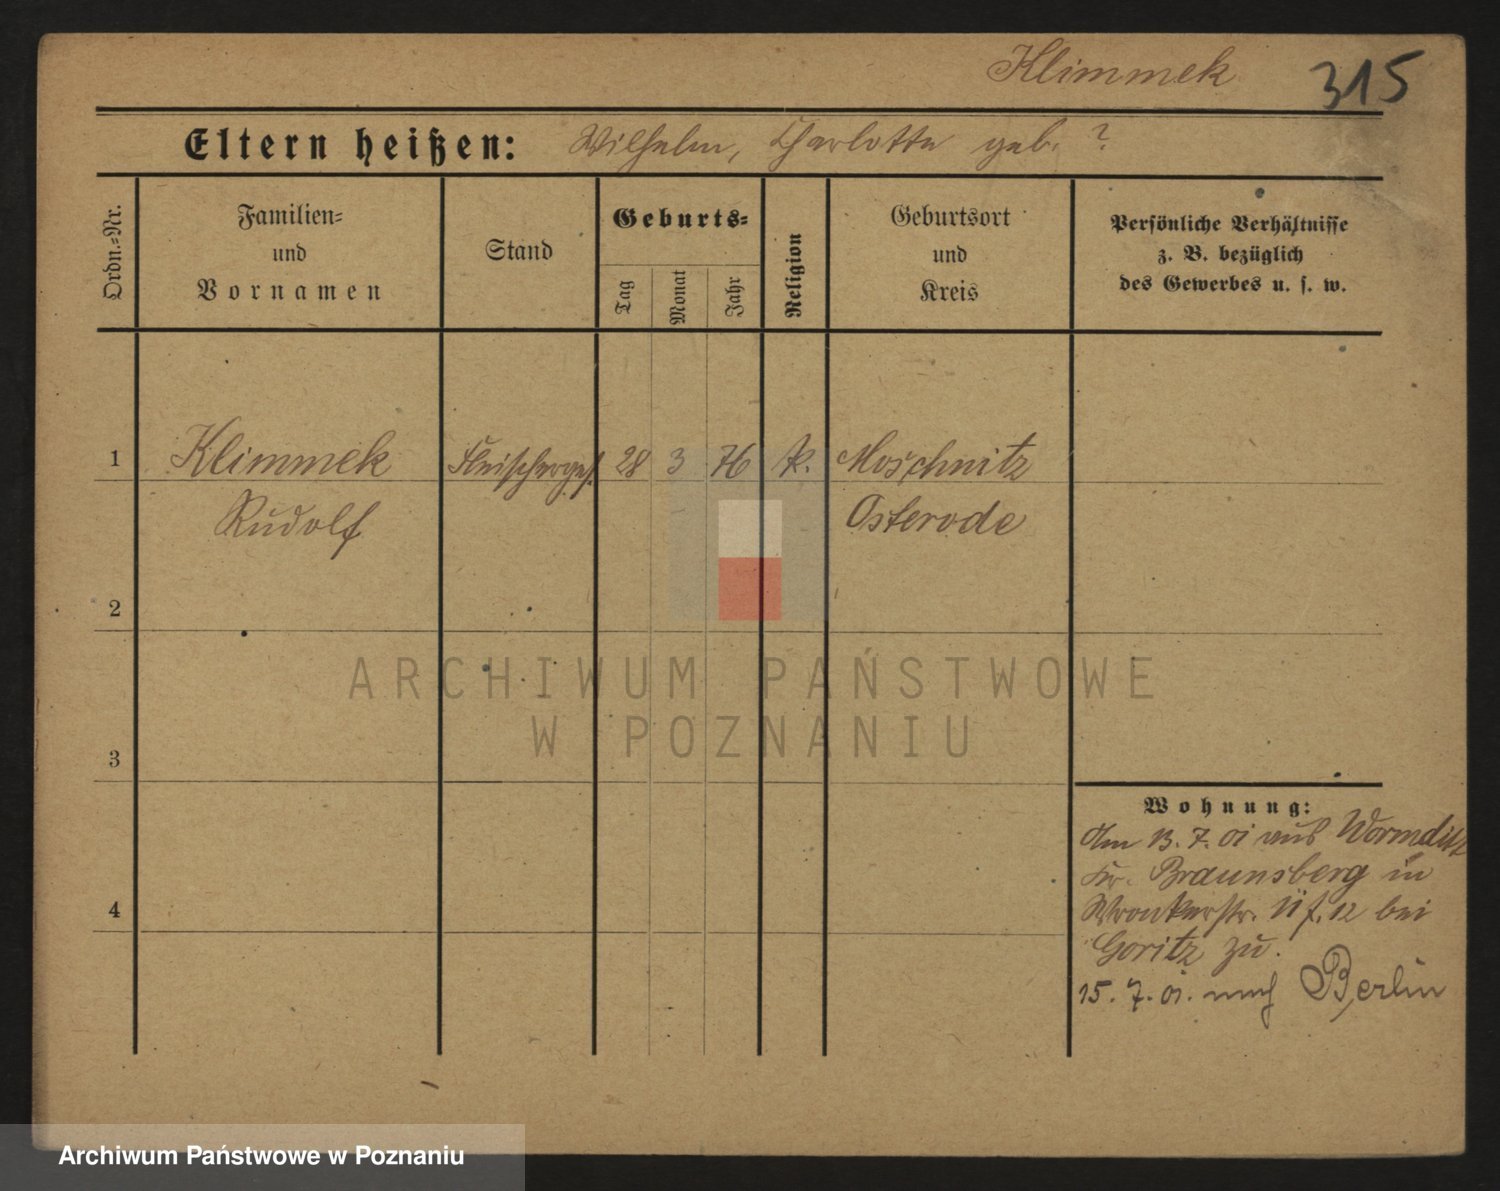 Klimmek 315
Eltern heißen: Wilhelm, Charlotte geb. ?
Ordn.-Nr.
Familien-
und
Vornamen
Stand
Geburts-
Tag
Monat
Jahr
Religion
Geburtsort
und
Kreis
Persönliche Verhältnisse
z. B. bezüglich
des Gewerbes u. s. w.
1 Klimmek Fleischerges. 28 3 76 k. Moschnitz
Rudolf Osterode
2
ARCHIWUM PAŃSTWOWE
W POZNANIU
3
Wohnung:
Am 13. 7. 01 aus Wormditt
Kr. Braunsberg in
Wronkerstr. 12 bei
Goritz zu.
4
15. 7. 01. nach Berlin
Archiwum Państwowe w Poznaniu